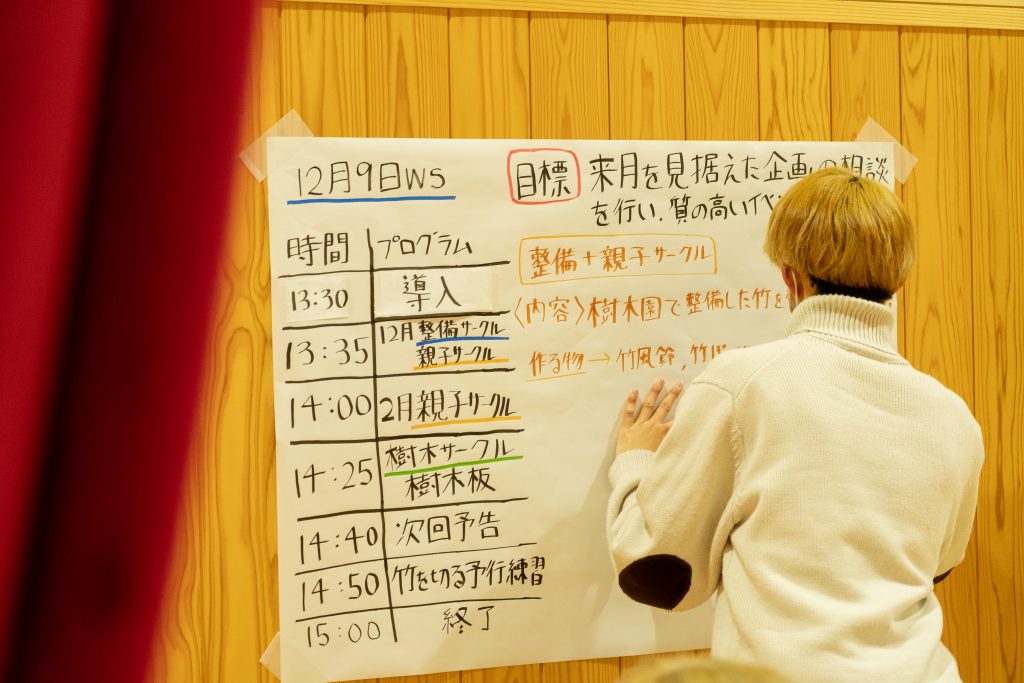 12月9日WS
目標 来月を見据えた企画の相談
を行い、質の高い
時間 プログラム
13:30 導入
13:35 12月整備サークル
親子サークル
14:00 2月親子サークル
14:25 樹木サークル
樹木板
14:40 次回予告
14:50 竹を切る予行練習
15:00 終了
整備+親子サークル
〈内容〉樹木園で整備した竹を
作る物→竹風鈴,竹